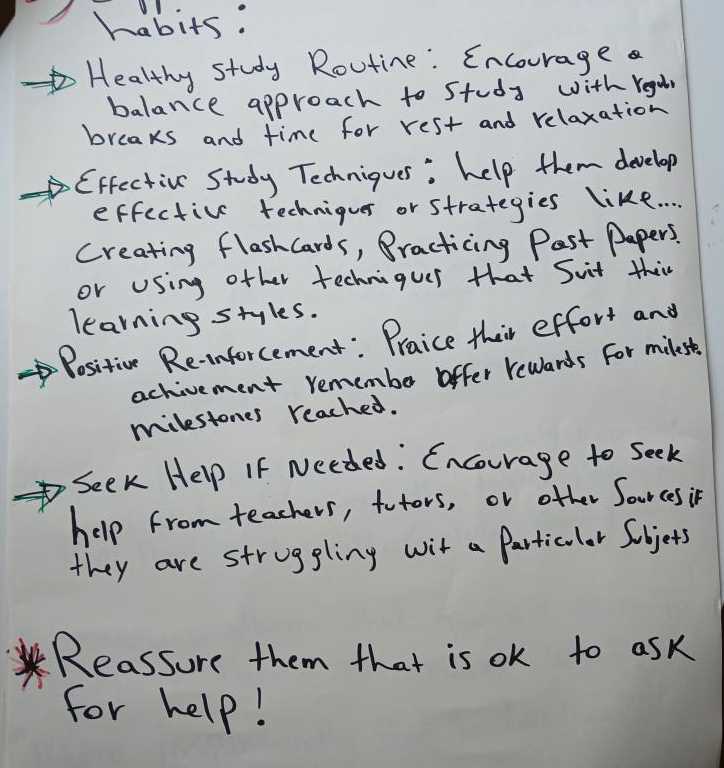 habits:
Healthy Study Routine: Encourage a
balance approach to study with regular
breaks and time for rest and relaxation
Effective Study Techniques: help them develop
effective techniques or strategies like....
Creating flashcards, Practicing Past Papers.
or using other techniques that Suit their
learning styles.
Positive Re-inforcement: Praice their effort and
achivement remember offer rewards for milest.
milestones reached.
Seek Help if Needed: Encourage to Seek
help from teachers, tutors, or other Sources if
they are struggling wit a Particular Subjets
Reassure them that is ok to ask
for help!